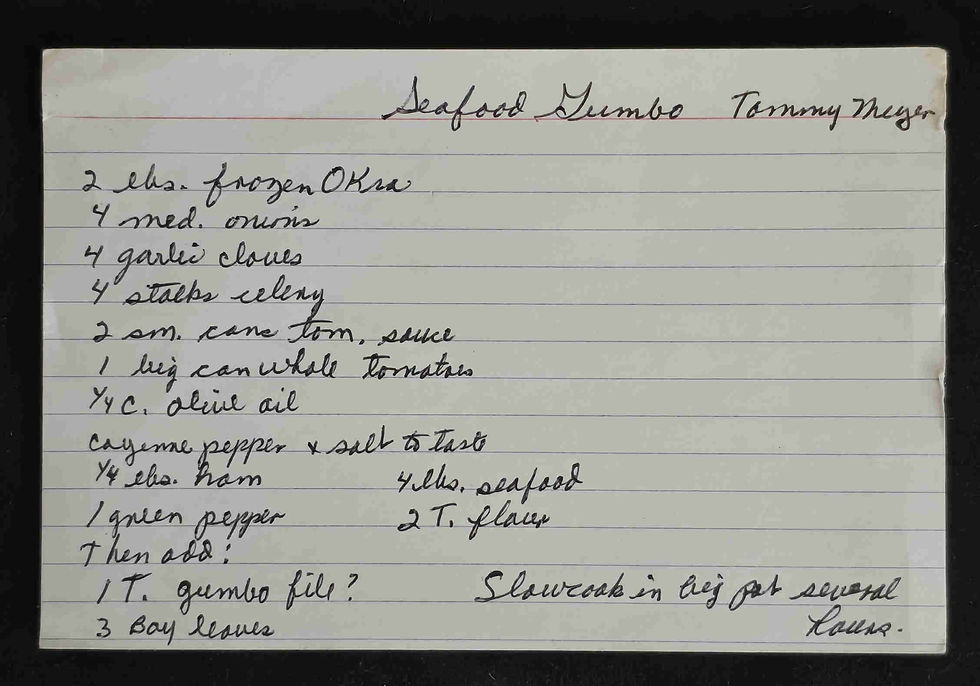 Seafood Gumbo Tommy Meyer
2 lbs. frozen OKra
4 med. onions
4 garlic cloves
4 stalks celery
2 sm. cans tom. sauce
1 big can whole tomatoes
1/4 c. olive oil
cayenne pepper & salt to taste
1/4 lbs. ham 4 lbs. seafood
1 green pepper 2 T. flour
Then add:
1 T. gumbo file? Slowcook in big pot several
3 Bay leaves hours.